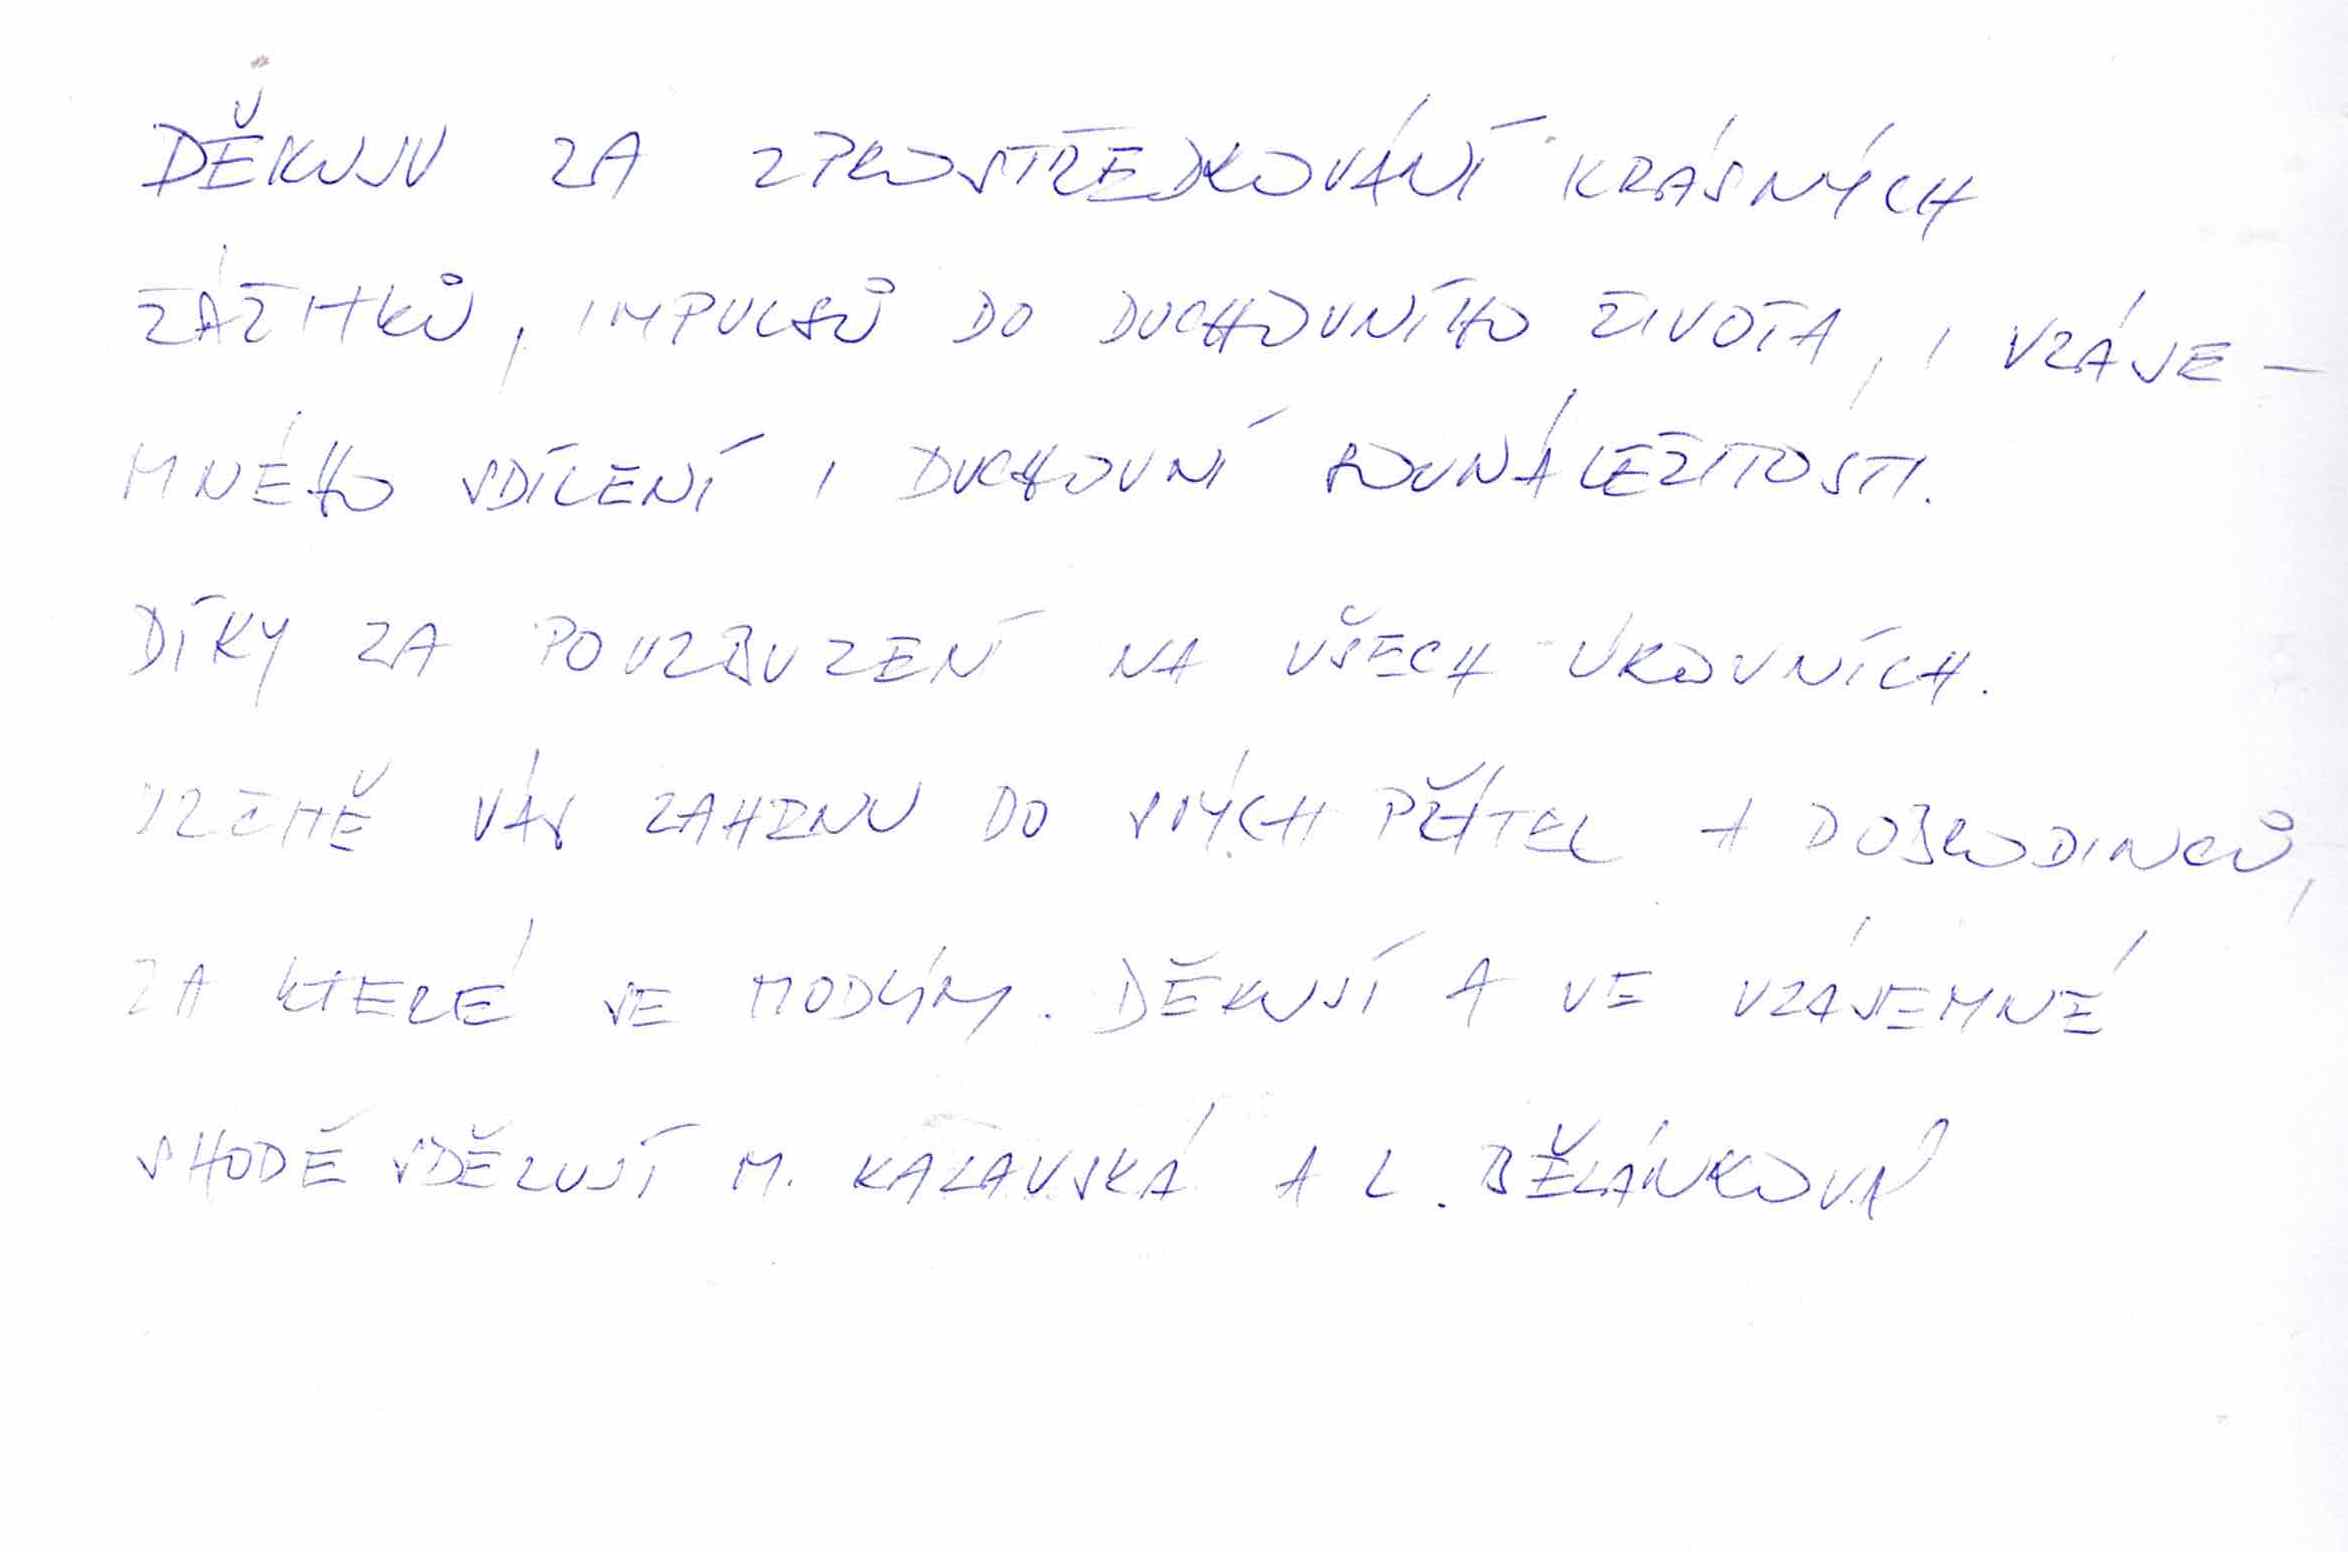 DĚKUJU ZA ZPROSTŘEDKOVÁNÍ KRÁSNÝCH
ZÁŽITKŮ, IMPULSŮ DO DUCHOVNÍHO ŽIVOTA, I VZÁJE-
MNÉHO SDÍLENÍ I DUCHOVNÍ SOUNÁLEŽITOSTI.
DÍKY ZA POVZBUZENÍ NA VŠECH ÚROVNÍCH.
VÁS ZAHRNU DO SVÝCH PŘÁTEL A DOBRODINCŮ,
ZA KTERÉ SE MODLÍM. DĚKUJÍ A VE VZÁJEMNÉ
SHODĚ SDĚLUJÍ M. KALAVSKÁ A L. BĚLÁNKOVÁ